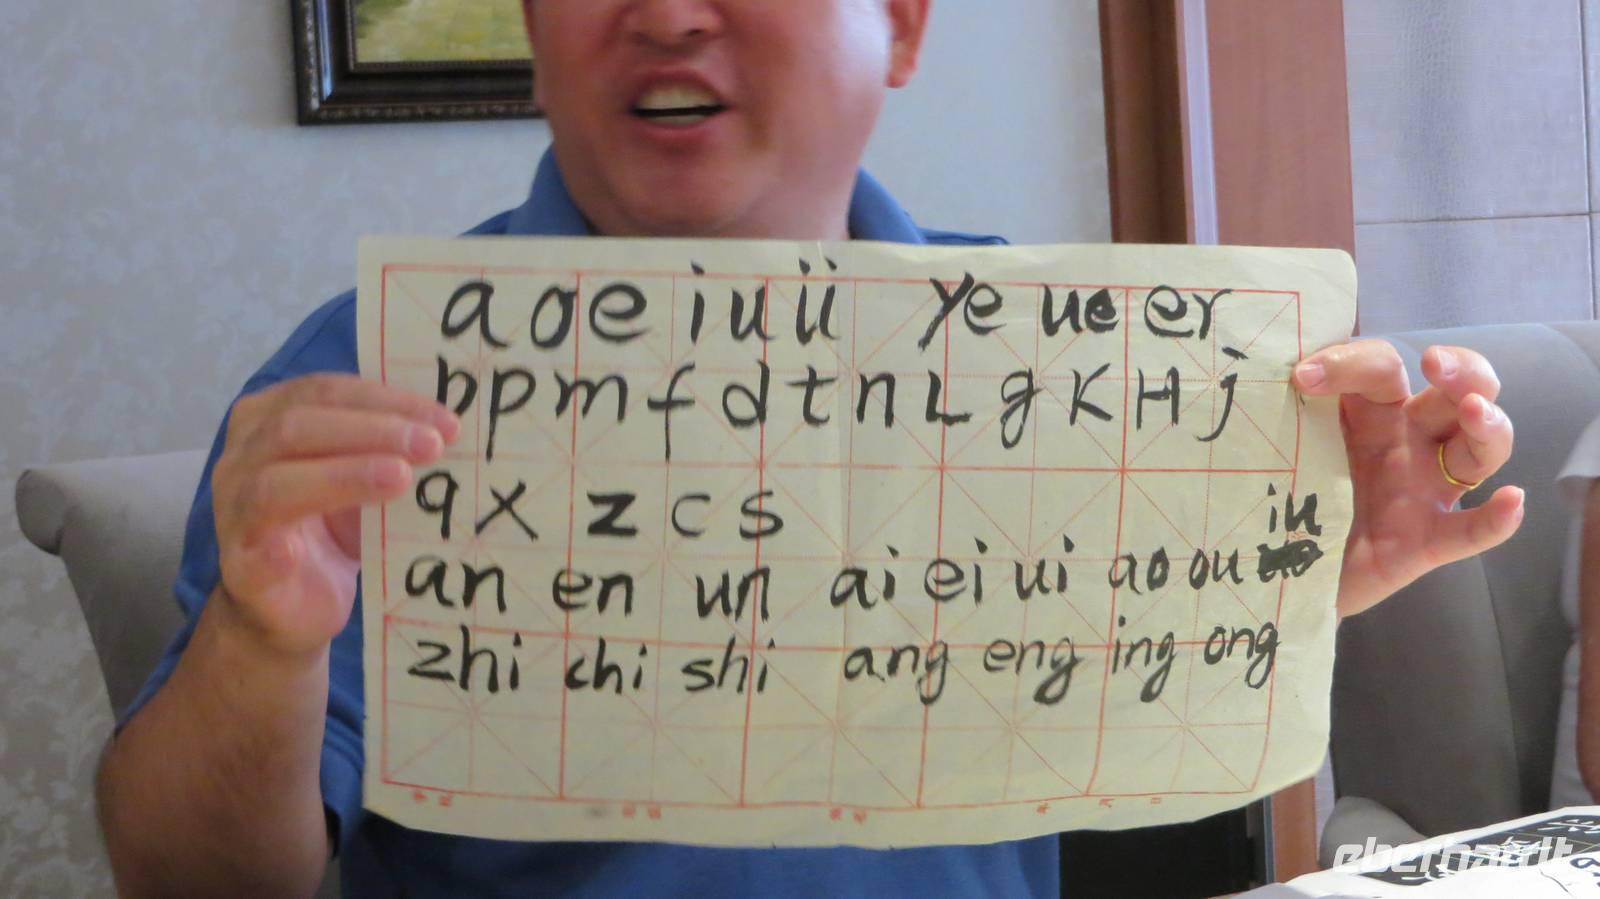 a o e i u ü ye ue er
b p m f d t n L g K H j
q x z c s
iu
an en un ai ei ui ao ou
zhi chi shi ang eng ing ong
eberhardt